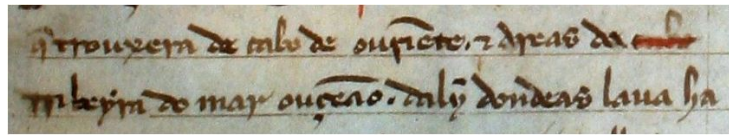 q̃ trouxera de cabo de ouriẽte. ⁊ areas da
rribeyra do mar ouçeão. daly dondeas laua ha